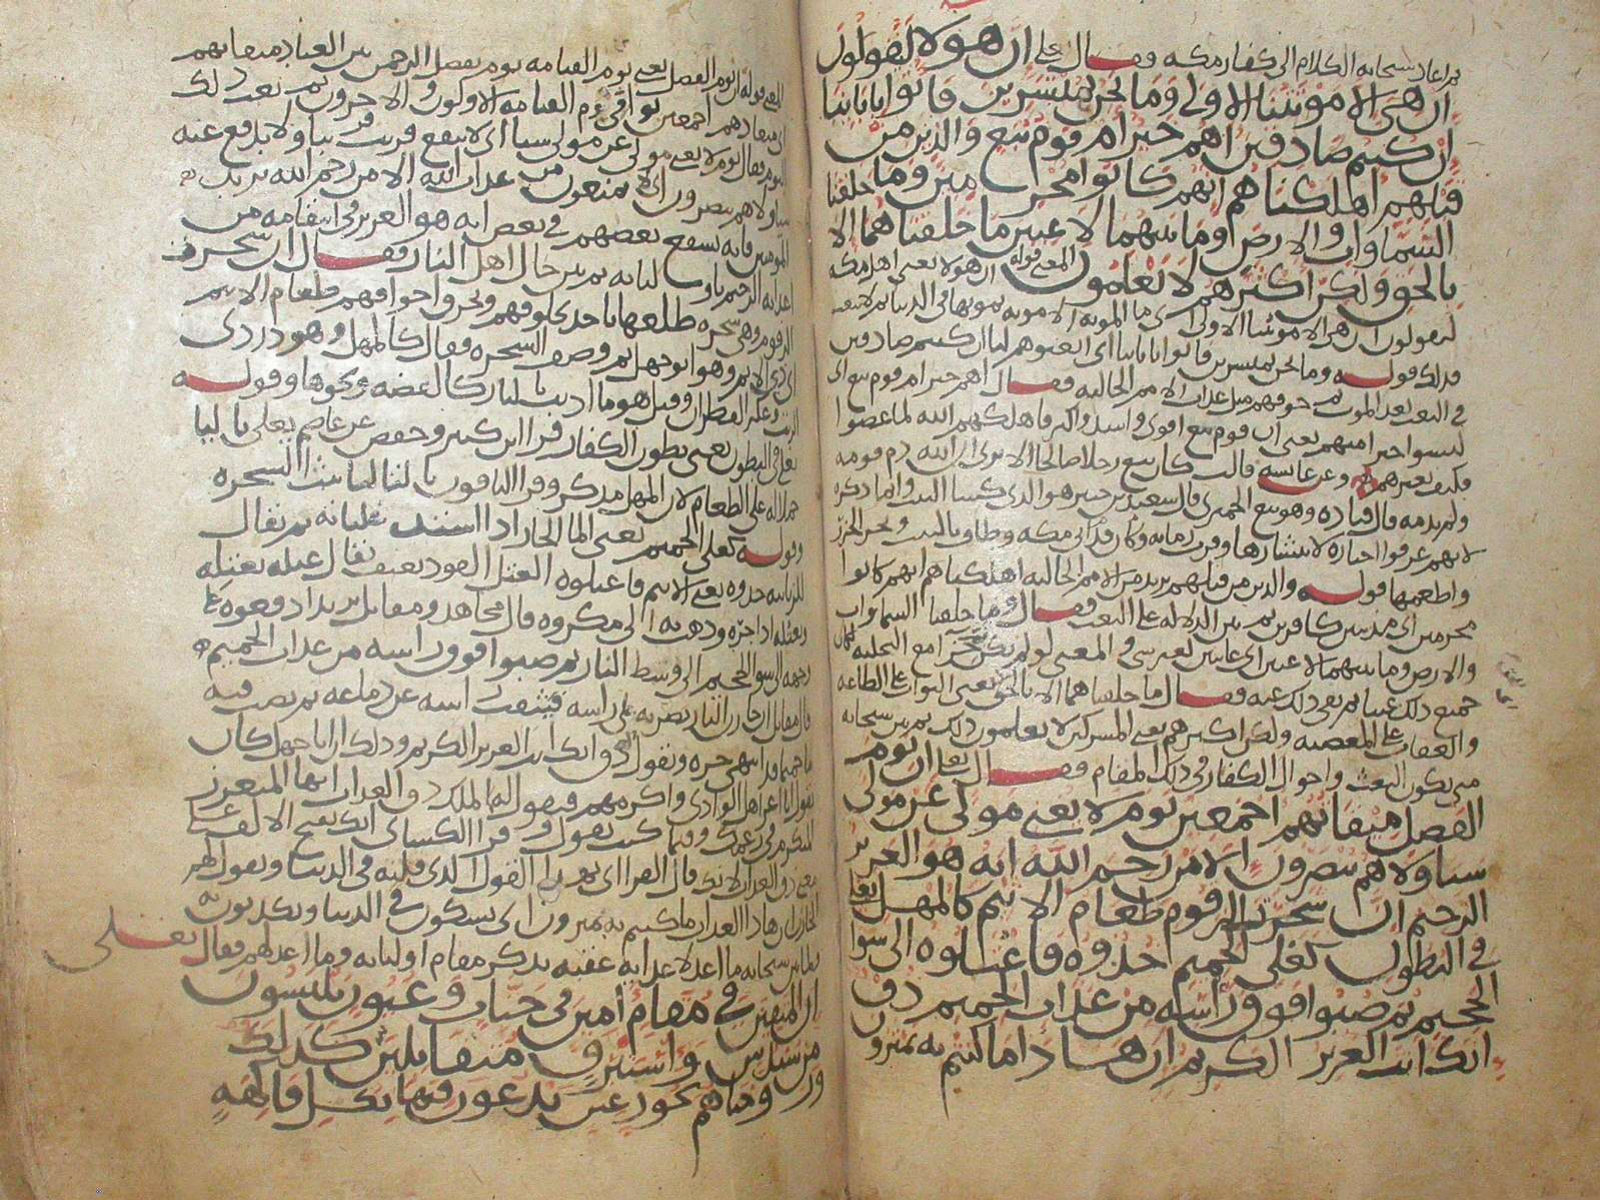 ثم اعاد سبحانه الكلام الى كفار مكه فقال على ان هولا ليقولون
ان هى الا موتتنا الاولى وما نحن بمنشرين فاتوا باباينا
ان كنتم صادقين اهم خير ام قوم تبع والذين من
قبلهم اهلكناهم انهم كانوا مجرمين وما خلقنا
السماوات والارض وما بينهما لاعبين ما خلقناهما الا
بالحق ولكن اكثرهم لا يعلمون المعنى قوله ان هولا يعنى اهل مكه
ليقولون ان هى الا موتتنا الاولى اى ما الموته الا موته نموتها فى الدنيا ثم لا نبعث
فذلك قوله وما نحن بمنشرين فاتوا باباينا اى ابعثوهم لنا ان كنتم صادقين
فى البعث بعد الموت ثم خوفهم مثل عذاب الامم الخاليه فقال اهم خير ام قوم تبع اى
ليسوا خيرا منهم يعنى ان قوم تبع اقوى واشد واكثر فاهلكهم الله لما عصوا
فكيف بغيرهم وعن عايشه قالت كان تبع رجلا صالحا الا ترى ان الله ذم قومه
ولم يذمه قال قتاده وهو تبع الحميرى قال سعيد بن جبير هو الذى كسا البيت وانما ذكره
لانهم عرفوا اخباره لانتشارها وقرب زمانه وكان قد اتى مكه وطاف بالبيت ونحر الجزر
واطعمها قوله والذين من قبلهم يريد من الامم الخاليه اهلكناهم انهم كانوا
مجرمين اى مذنبين كافرين ثم بين الدلاله على البعث فقال وما خلقنا السماوات
والارض وما بينهما لاعبين اى عابثين لغير شى والمعنى لو لم يكن جزا مع التخليه لكان
جميع ذلك عبثا ثم نفى ذلك عنه فقال ما خلقناهما الا بالحق يعنى الثواب على الطاعه
والعقاب على المعصيه ولكن اكثرهم يعنى المشركين لا يعلمون ذلك ثم بين سبحانه
متى يكون البعث واحوال الكفار فى ذلك المقام فقال تعالى ان يوم
الفصل ميقاتهم اجمعين يوم لا يغنى مولى عن مولى
شيا ولا هم ينصرون الا من رحم الله انه هو العزيز
الرحيم ان شجرت الزقوم طعام الاثيم كالمهل يغلى
فى البطون كغلى الحميم خذوه فاعتلوه الى سوا
الجحيم ثم صبوا فوق راسه من عذاب الحميم ذق
انك انت العزيز الكريم ان هذا ما كنتم به تمترون
المعنى قوله ان يوم الفصل يعنى يوم القيامه يوم يفصل الرحمن بين العباد ميقاتهم
اى ميعادهم اجمعين يوافى يوم القيامه الاولون والاخرون ثم نعت ذلك
اليوم فقال يوم لا يغنى مولى عن مولى شيا اى لا ينفع قريب قريبا ولا يدفع عنه
شيا ولا هم ينصرون اى لا يمنعون من عذاب الله الا من رحم الله يريد
المومنين فانه يشفع بعضهم فى بعض انه هو العزيز فى انتقامه من
اعدايه الرحيم باوليايه ثم بين حال اهل النار فقال ان شجرت
الزقوم وهى شجره طلعها ... وخوافهم طعام الاثيم
اى ذى الاثم وهو ابو جهل ثم وصف الشجره فقال كالمهل وهو دردى
الزيت وعكر القطران وقيل هو ما اذيب بالنار كالفضه ونحوها وقوله
يغلى فى البطون يعنى بطون الكفار قرا ابن كثير وحفص عن عاصم يغلى باليا
حملاه على الطعام لان المهل مذكر وقرا الباقون بالتا لتانيث الشجره
وقوله كغلى الحميم يعنى الما الحار اذا اشتد غليانه ثم يقال
للزبانيه خذوه يعنى الاثيم فاعتلوه العتل القود بعنف يقال عتله يعتله
ويعتله اذا جره وذهب به الى مكروه قال مجاهد ومقاتل يريد ادفعوه على
وجهه الى سوا الجحيم الى وسط النار ثم صبوا فوق راسه من عذاب الحميم
قال مقاتل ان خازن النار يضربه على راسه فينقب راسه عن دماغه ثم يصب فيه
ما حميما قد انتهى حره ويقول ذق انك انت العزيز الكريم وذلك ان ابا جهل كان
يقول انا اعز اهل الوادى واكرمهم فيقول له الملك ذق العذاب ايها المتعزز
المتكرم فى زعمك وفيما كنت تقول وقرا الكساى انك بفتح الالف على
معنى ذق العذاب لانك قال الفرا اى بهذا القول الذى قلته فى الدنيا ويقول لهم
الخازن ان هذا العذاب ما كنتم به تمترون اى تشكون فى الدنيا وتكذبون به
فلما بين سبحانه ما اعد لاعدايه عقبه بذكر مقام اوليايه وما اعد لهم فقال تعالى
ان المتقين فى مقام امين فى جنات وعيون يلبسون
من سندس واستبرق متقابلين كذلك
وزوجناهم بحور عين يدعون فيها بكل فاكهه